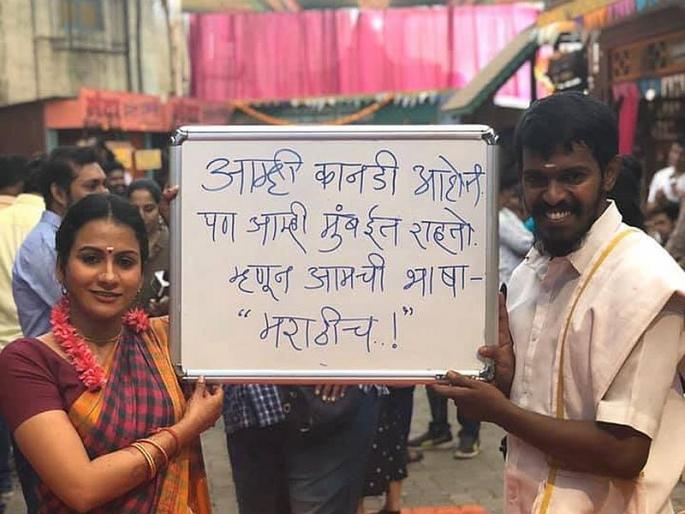 आम्ही कानडी आहोत.
पण आम्ही मुंबईत राहतो.
म्हणून आमची भाषा -
"मराठीच..!"